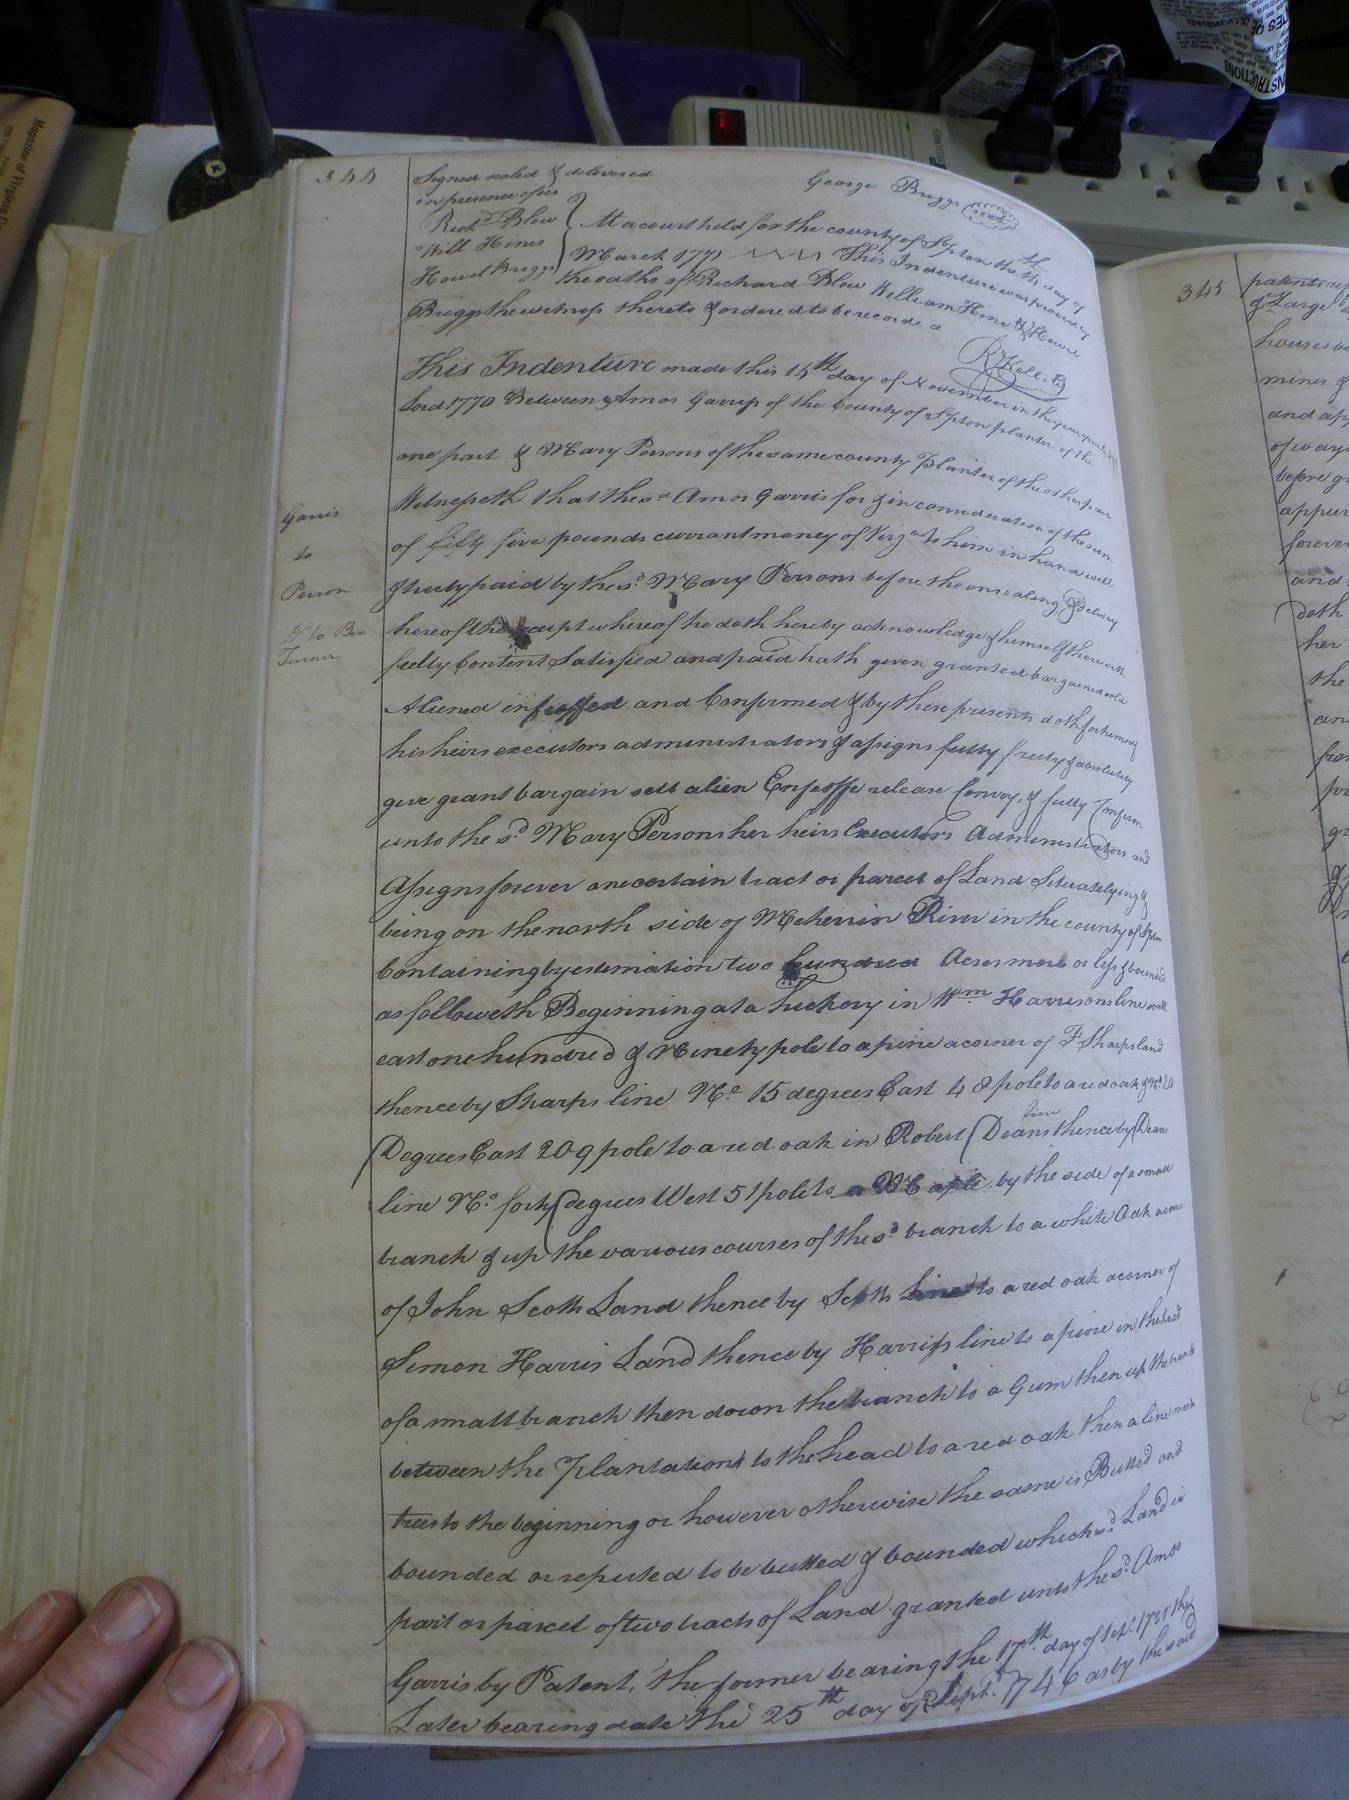 344
Signed sealed & delivered
in presence of us
George Briggs (seal)
Richd Blow
Will Hines
Howel Briggs
At a court held for the county of Sopton the 14th day of
March 1771 This Indenture was proved by
the oaths of Richard Blow William Hines & Howel
Briggs the witness thereto & ordered to be recorded
R Kello
This Indenture made this 15th day of November in the year
Lord 1770 Between Amos Garriss of the County of Sopton planter of the
one part & Mary Persons of the same county Planter of the other part
Witnesseth that the sd Amos Garris for & in consideration of the sum
of fifty five pounds currant money of Virga to him in hand well
& truly paid by the sd Mary Persons before the ensealing & delivery
hereof the receipt whereof he doth hereby acknowledge & himself therewith
fully Content Satisfied and paid hath given granted bargained sold
Aliened infeoffed and Confirmed & by these presents doth for himself
his heirs executors administrators & assigns fully freely & absolutely
give grant bargain sell alien Enfeoffe release Convey & fully Confirm
unto the sd Mary Persons her heirs Executors Administrators and
Assigns forever one certain tract or parcel of Land Situate lying &
being on the north side of Meherrin River in the county of Sopton
Containing by estimation two hundred Acres more or less & bounded
as followeth Beginning at a hickory in Wm Harrisons line
east one hundred & Ninety pole to a pine a corner of F Sharps land
thence by Sharps line No 15 degrees East 48 pole to a red oak & No 20
Degrees East 209 pole to a red oak in Robert Deans line thence by Dean
line No forty degrees West 51 pole to a Maple by the side of a small
branch & up the various courses of the sd branch to a white Oak
of John Scoth Land thence by Scoth line to a red oak a corner of
Simon Harris Land thence by Harriss line to a pine in the head
of a small branch then down the branch to a Gum then up the branch
between the Plantations to the head to a red oak then a line
trees to the beginning or however otherwise the same is Butted and
bounded or reputed to be butted & bounded which sd Land is
part or parcel of two tracts of Land granted unto the sd Amos
Garris by Patent, the former bearing the 17th day of Sept.
Later bearing date the 25th day of Sept. 1746 as by the said
Garris
to
Person
Do to Ben
Turner
345
houses
mines &
and
of
before
appur
forever
and
Doth
her
the
an
INSTRUCTIONS
Magazine of Virginia